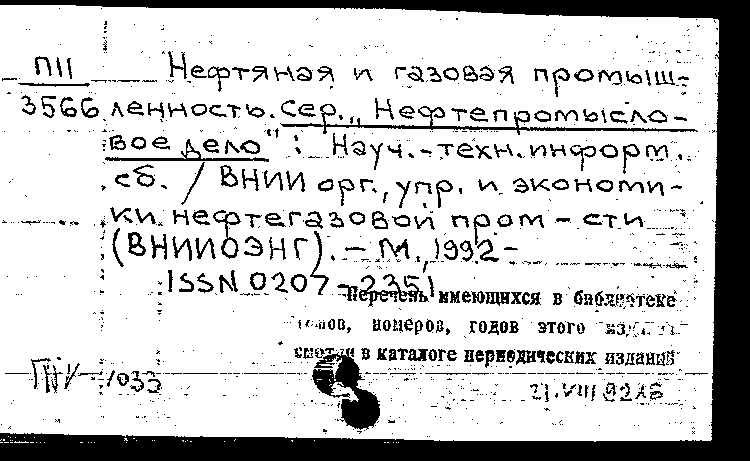 П11
3566
Нефтяная и газовая промыш-
ленность. Сер. „Нефтепромысло-
вое дело" : Науч.-техн. информ.
сб. / ВНИИ орг., упр. и экономи-
ки нефтегазовой пром-сти
(ВНИИОЭНГ). - М., 1992 -
ISSN 0207-2351
Перечень имеющихся в библиотеке
номеров, годов этого
в каталоге периодических изданий
1033
21.VIII 92